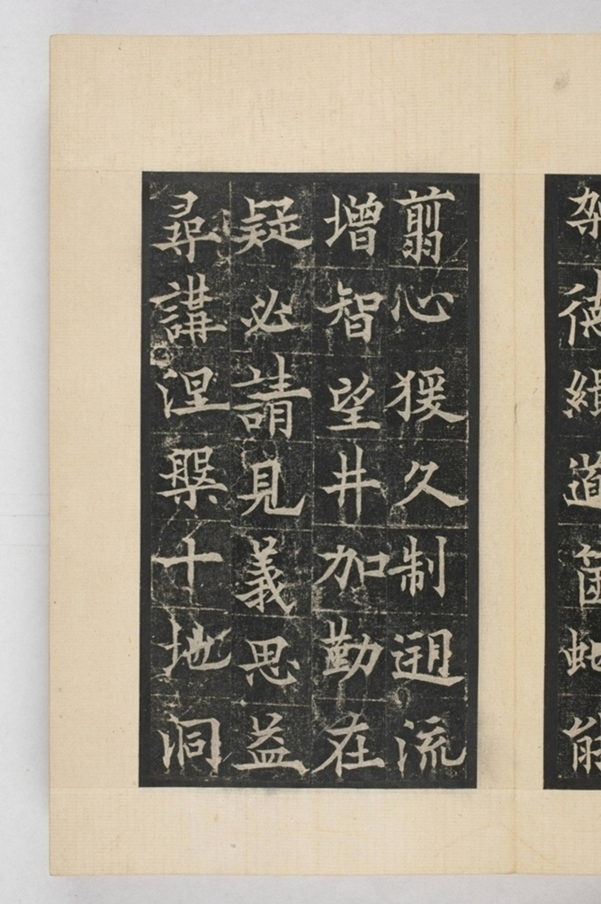 德緝道虵能
翦心猨久制遡流
增智望井加勤在
疑必請見義思益
尋講涅槃十地洞